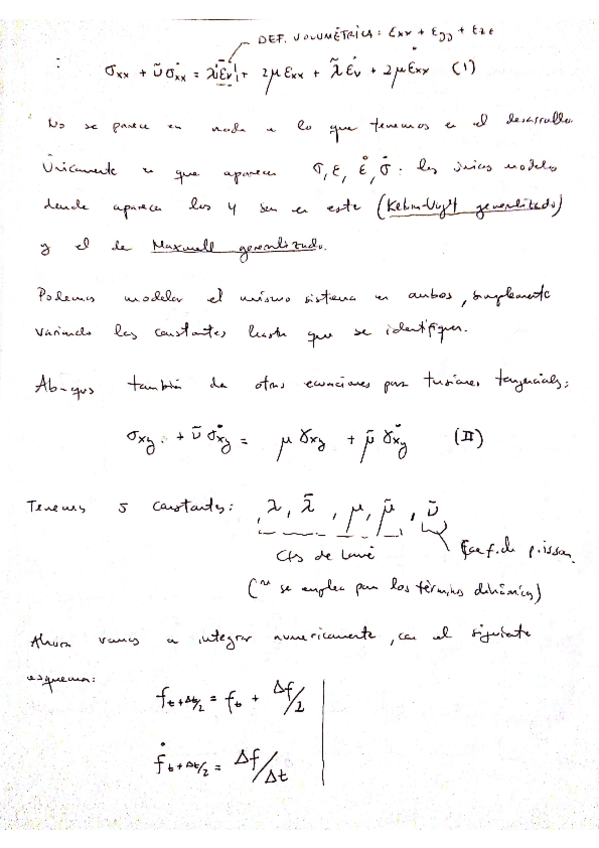 DEF. VOLUMÉTRICA: εxx + εyy + εzz
σxx + ν̃ σ̇xx = λ εv + 2μ εxx + λ̃ ε̇v + 2μ̃ ε̇xx (1)
No se parece en nada a lo que tenemos en el desarrollo.
Únicamente en que aparecen σ, ε, ε̇, σ̇. Los únicos modelos
donde aparecen los 4 son en este (Kelvin-Voigt generalizado)
y el de Maxwell generalizado.
Podemos modelar el mismo sistema en ambos, simplemente
variando las constantes hasta que se identifiquen.
Abaqus también da otras ecuaciones para tensiones tangenciales:
σxy + ν̃ σ̇xy = μ γxy + μ̃ γ̇xy (II)
Tenemos 5 constantes: λ, λ̃, μ, μ̃, ν̃
Ctes de Lamé
Coef. de poisson
(~ se emplea para los términos dinámicos)
Ahora vamos a integrar numéricamente, con el siguiente
esquema:
f t+Δt/2 = f t + Δf/2
ḟ t+Δt/2 = Δf/Δt